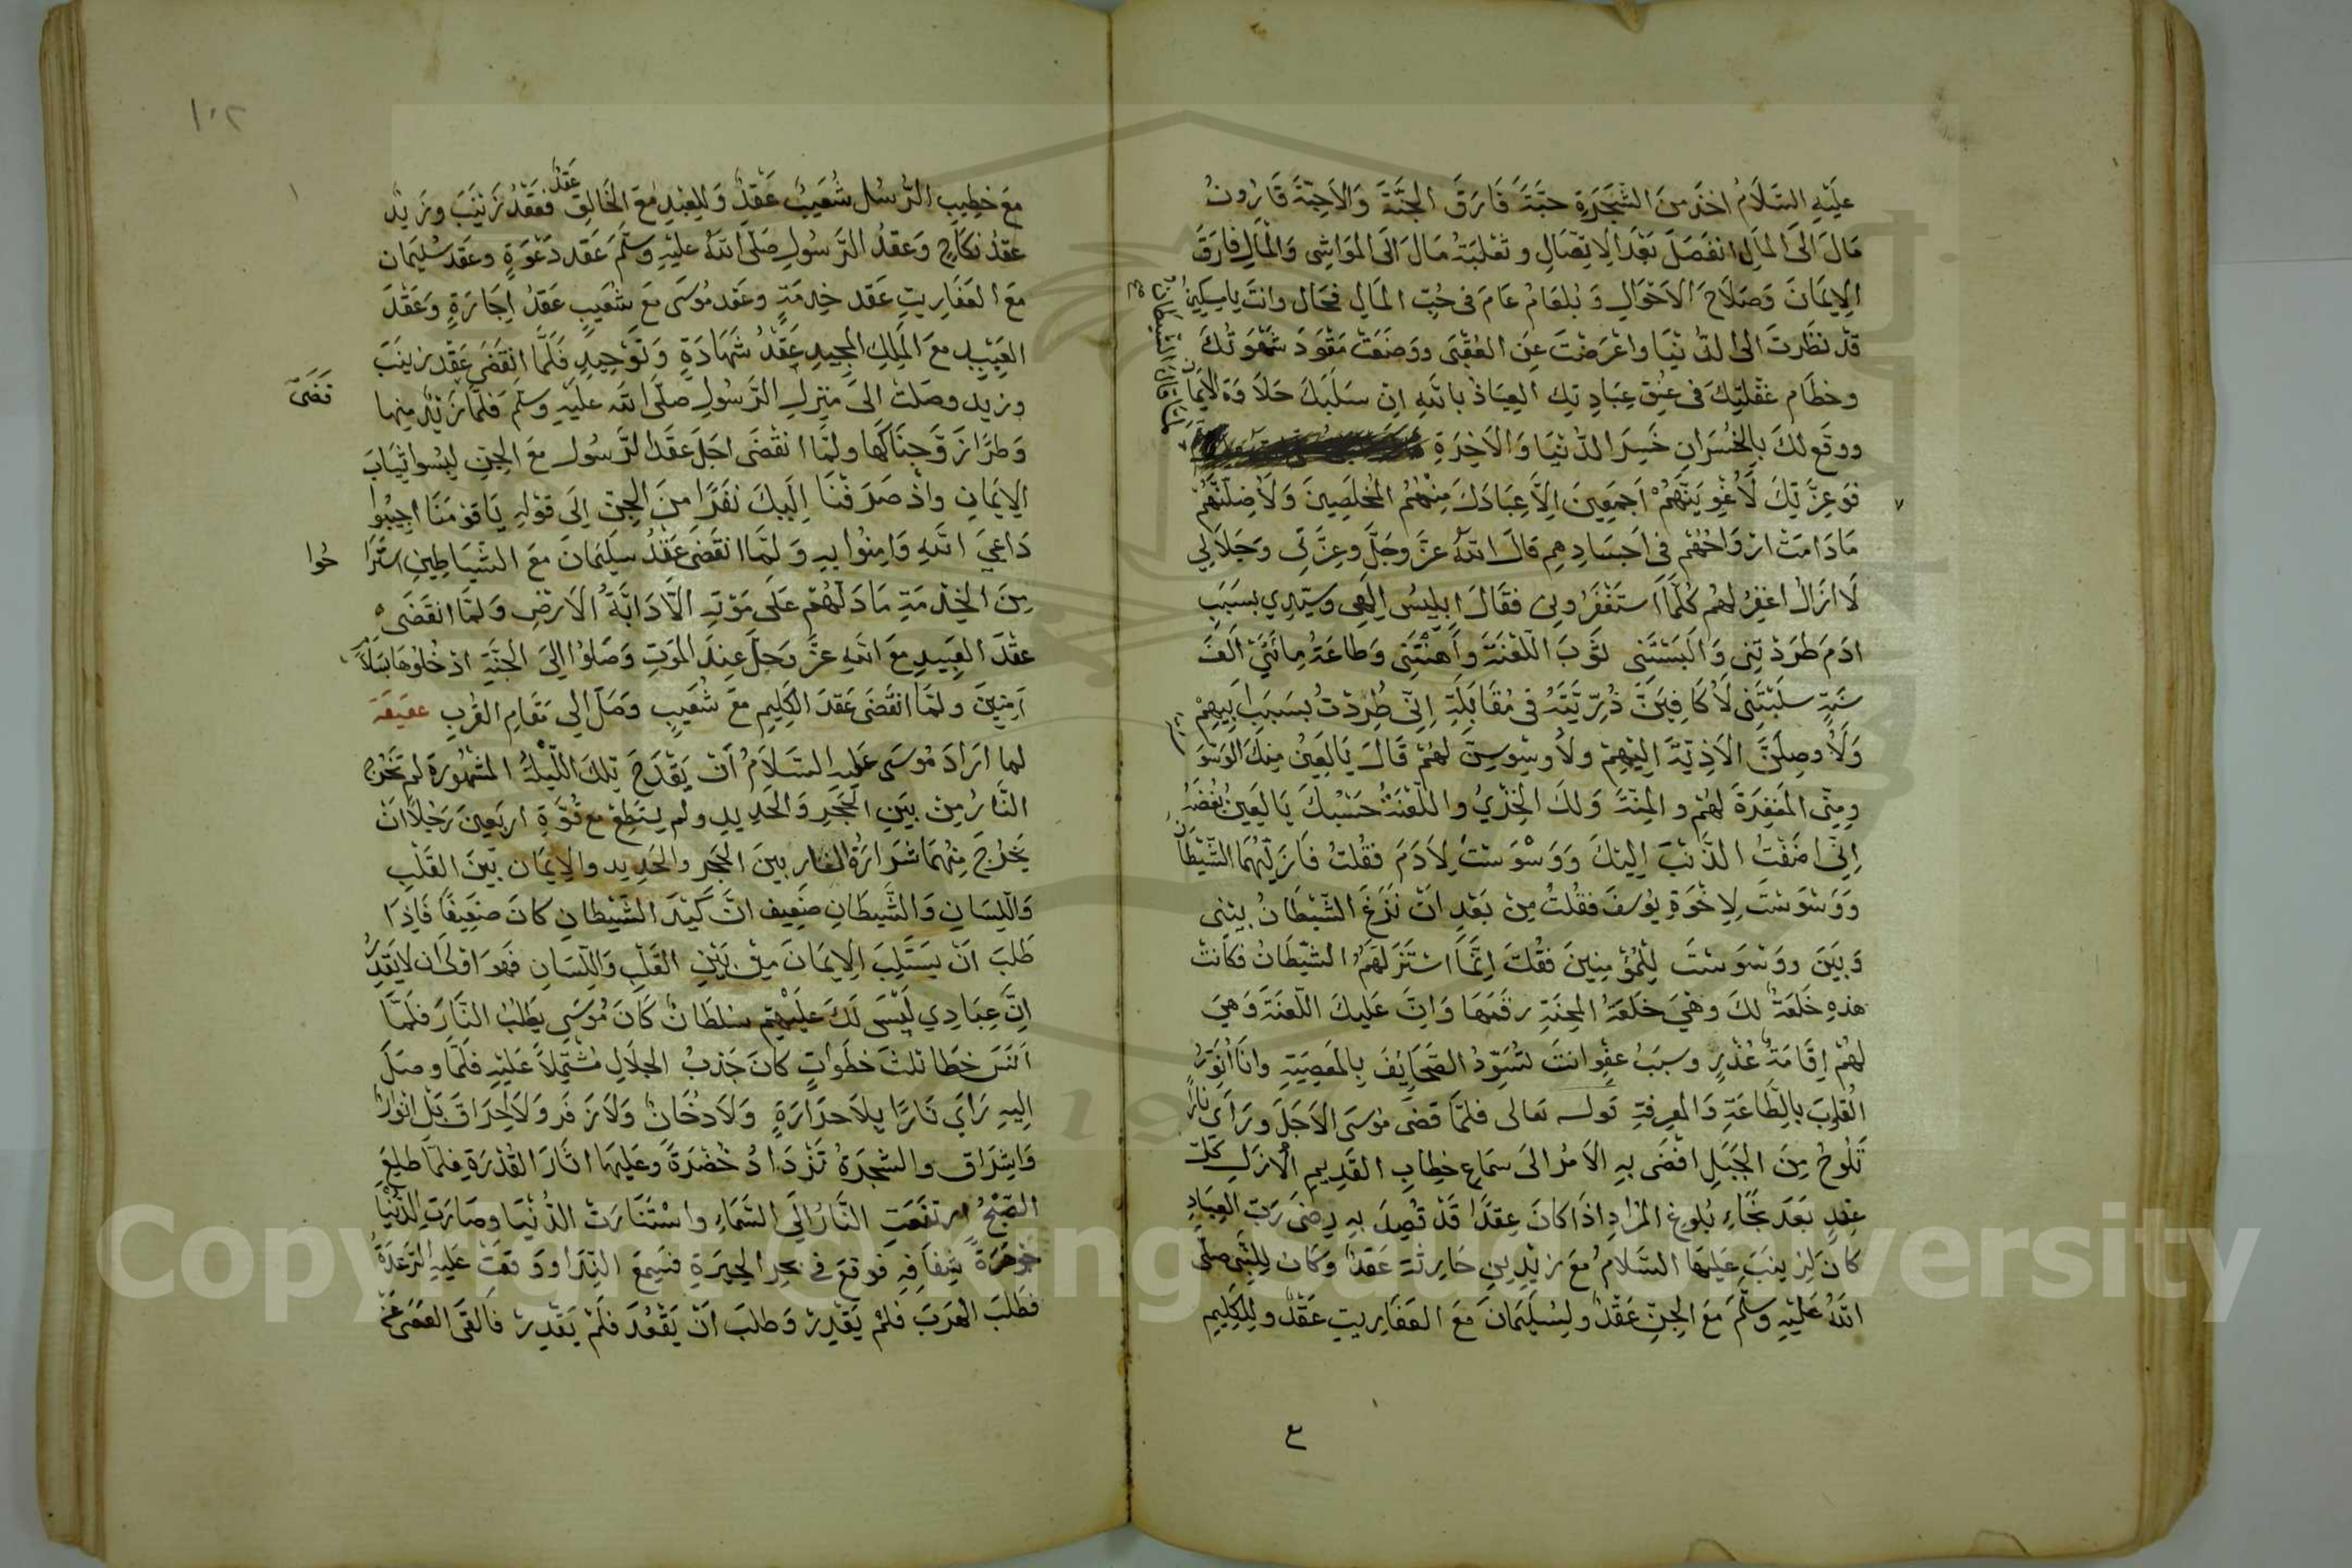 عليه السلام اخذ من الشجرة حبة فارق الجنة والاحبة قارون
مال الى المال انفصل بعد الاتصال وثعلبة مال الى المواشى والمال فارق
الايمان وصلاح الاحوال وبلعام عام فى حب المال فحال وانت يا مسكين
قد نظرت الى الدنيا واعرضت عن العقبى ووضعت مقود شهوتك
وخطام غفلتك فى عنق عبادتك العياذ بالله ان سلبك حلاوة الايمان
ووقع لك بالخسران خسر الدنيا والاخرة
لما قال الشيطان
فوعزتك لاغوينهم اجمعين الا عبادك منهم المخلصين ولاضلنهم
ما دامت ارواحهم فى اجسادهم قال الله عز وجل وعزتى وجلالي
لا ازال اغفر لهم كلما استغفرونى فقال ابليس الهى وسيدي بسبب
ادم طردتنى والبستنى ثوب اللعنة واهنتنى وطاعة مائتى الف
سنة سلبتنى لاكافين ذريته فى مقابلة انى طردت بسبب ابيهم
ولاوصلن الاذية اليهم ولاوسوسن لهم قال يا لعين منك الوسوسة
ومنى المغفرة لهم والمنة ولك الخزي واللعنة حسبك يا لعين بغضة
انى اضفت الذنب اليك ووسوست لادم فقلت فازلهما الشيطان
ووسوست لاخوة يوسف فقلت من بعد ان نزغ الشيطان بينى
وبين ووسوست للمؤمنين فقلت انما استزلهم الشيطان فكانت
هذه خلعة لك وهي خلعة المحنة رقمها وان عليك اللعنة وهي
لهم اقامة عذر وسبب عفو انت تسود الصحايف بالمعصية وانا انور
القلوب بالطاعة والمعرفة قوله تعالى فلما قضى موسى الاجل وراى نارا
تلوح من الجبل افضى به الامر الى سماع خطاب القديم الازل كل
عقد بعد نجاء بلوغ المراد اذا كان عقدا قد قصد به رضى رب العباد
كان لزينب عليها السلام مع زيد بن حارثة عقد وكان للنبى صلى
الله عليه وسلم مع الجن عقد ولسليمان مع العفاريت عقد وللكليم
ع
١٠٢
مع خطيب الرسل شعيب عقد وللعبد مع الخالق عقد فعقد زينب وزيد
عقد نكاح وعقد الرسول صلى الله عليه وسلم عقد دعوة وعقد سليمان
مع العفاريت عقد خدمة وعقد موسى مع شعيب عقد اجازة وعقد
العبيد مع الملك المجيد عقد شهادة وتوحيد فلما انقضى عقد زينب
وزيد وصلت الى منزل الرسول صلى الله عليه وسلم فلما زيد منها
قضى
وطرا زوجناكها ولما انقضى اجل عقد الرسول مع الجن لبسوا ثياب
الايمان واذ صرفنا اليك نفرا من الجن الى قوله يا قومنا اجيبوا
داعي الله وامنوا به ولما انقضى عقد سليمان مع الشياطين استرا
حوا
من الخدمة ما دلهم على موته الا دابة الارض ولما انقضى
عقد العبيد مع الله عز وجل عند الموت وصلوا الى الجنة ادخلوها بسلام
آمنين ولما انقضى عقد الكليم مع شعيب وصل الي مقام القرب عقيقة
لما اراد موسى عليه السلام ان يقدح تلك الليلة المشهورة لم تخرج
النار من بين الحجر والحديد ولم يستطع مع قوة اربعين رجلا ان
يخرج منهما شرارة النار بين الحجر والحديد والايمان بين القلب
واللسان والشيطان ضعيف ان كيد الشيطان كان ضعيفا فاذا
طلب ان يستلب الايمان من بين القلب واللسان فهو اولى ان لا يقدر
ان عبادي ليس لك عليهم سلطان كان موسى يطلب النار فلما
آنس خطا ثلث خطوات كان جذب الجلال مشتملا عليه فلما وصل
اليه راي نارا بلا حرارة ولا دخان ولا زفر ولا احراق بل انوار
واشراق والشجرة تزداد خضرة وعليها اثار القدرة فلما طلع
الصبح ارتفعت النار الى السماء واستنارت الدنيا وصارت الدنيا
جوهرة شفافة فوقع فى بحر الحيرة فسمع الندا ووقعت عليه الرعدة
فطلب الهرب فلم يقدر وطلب ان يقعد فلم يقدر فالقى العصى عنه